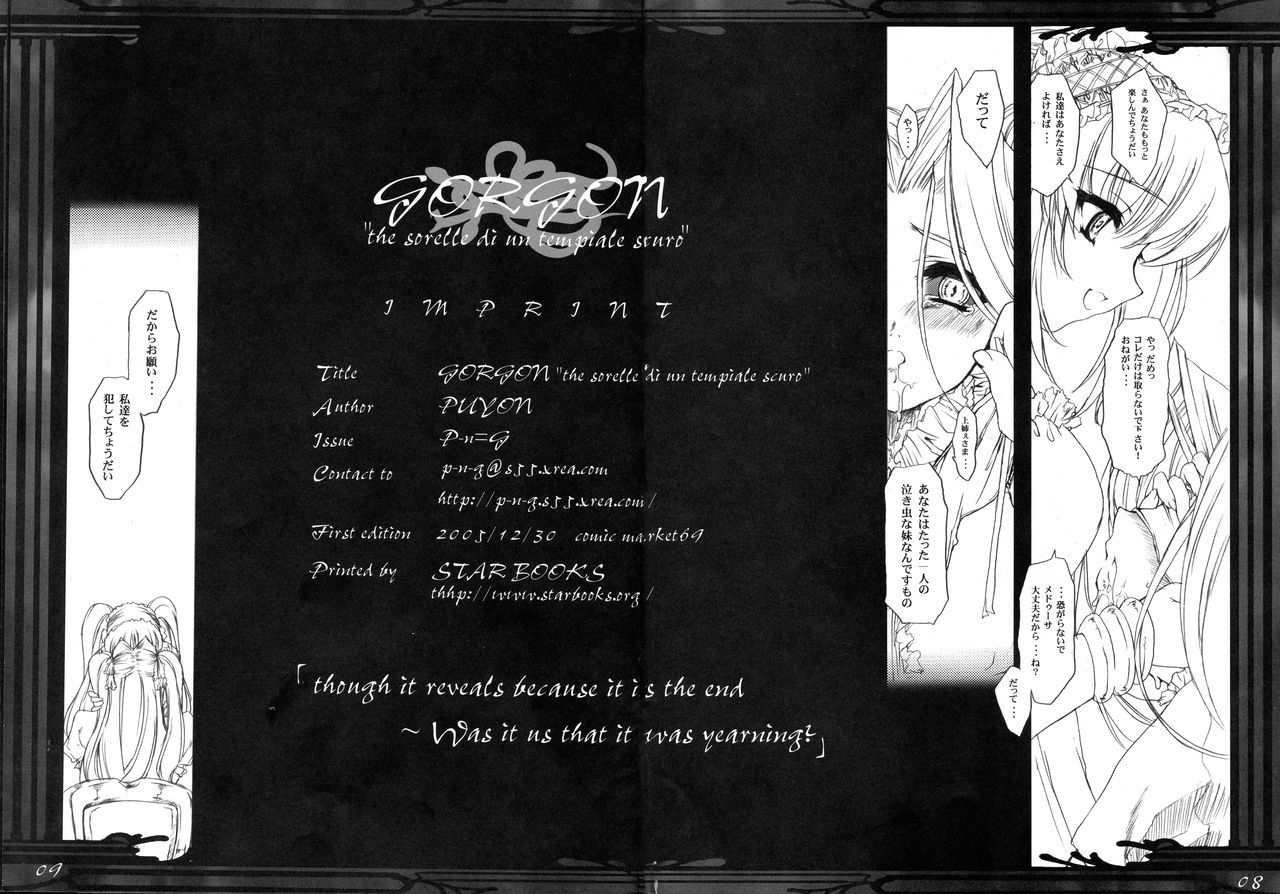 さぁ あなたももっと
楽しんでちょうだい
私達はあなたさえ
よければ・・・
やっ だめっ
コレだけは取らないで下さい!
おねがい・・・
・・・恐がらないで
メドゥーサ
大丈夫だから・・・ね?
だって・・・
だって
やっ・・・
上姉ぇさま・・・
あなたはたった一人の
泣き虫な妹なんですもの
GORGON
"the sorelle di un tempiale scuro"
IMPRINT
Title GORGON "the sorelle di un tempiale scuro"
Author PUYON
Issue P-n=G
Contact to p-n-g@s55.xrea.com
http://p-n-g.s55.xrea.com/
First edition 2005/12/30 comic market69
Printed by STAR BOOKS
thhp://www.starbooks.org/
「though it reveals because it is the end
~ Was it us that it was yearning?」
だからお願い・・・
私達を
犯してちょうだい
09
08